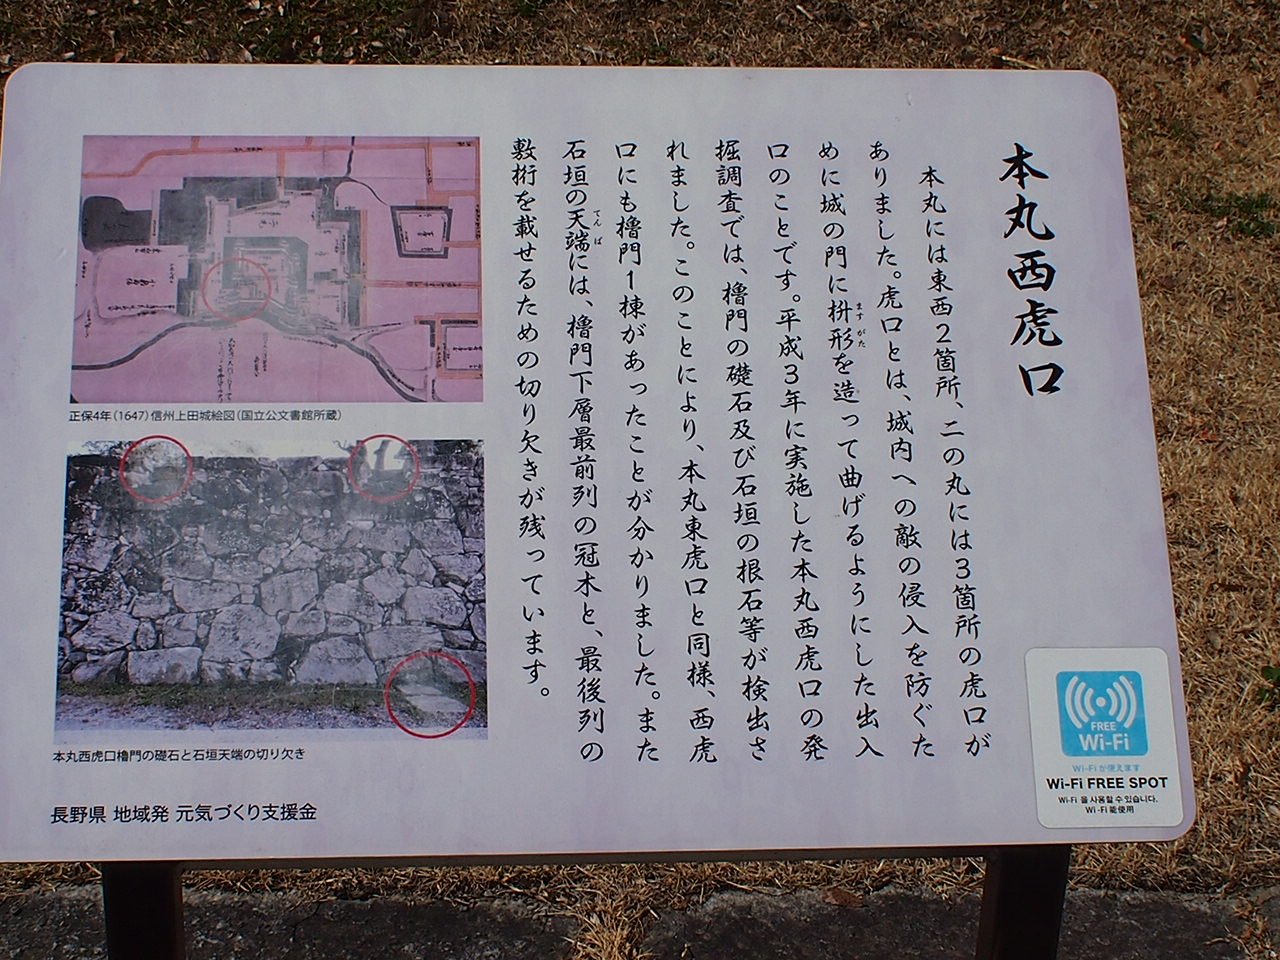 本丸西虎口
本丸には東西2箇所、二の丸には3箇所の虎口が
ありました。虎口とは、城内への敵の侵入を防ぐた
めに城の門に枡形を造って曲げるようにした出入
ますがた
口のことです。平成3年に実施した本丸西虎口の発
掘調査では、櫓門の礎石及び石垣の根石等が検出さ
れました。このことにより、本丸東虎口と同様、西虎
口にも櫓門1棟があったことが分かりました。また
石垣の天端には、櫓門下層最前列の冠木と、最後列の
てんば
敷桁を載せるための切り欠きが残っています。
正保4年(1647)信州上田城絵図(国立公文書館所蔵)
本丸西虎口櫓門の礎石と石垣天端の切り欠き
長野県 地域発 元気づくり支援金
FREE
Wi-Fi
Wi-Fiが使えます
Wi-Fi FREE SPOT
Wi-Fi 을 사용할 수 있습니다.
Wi-Fi 能使用